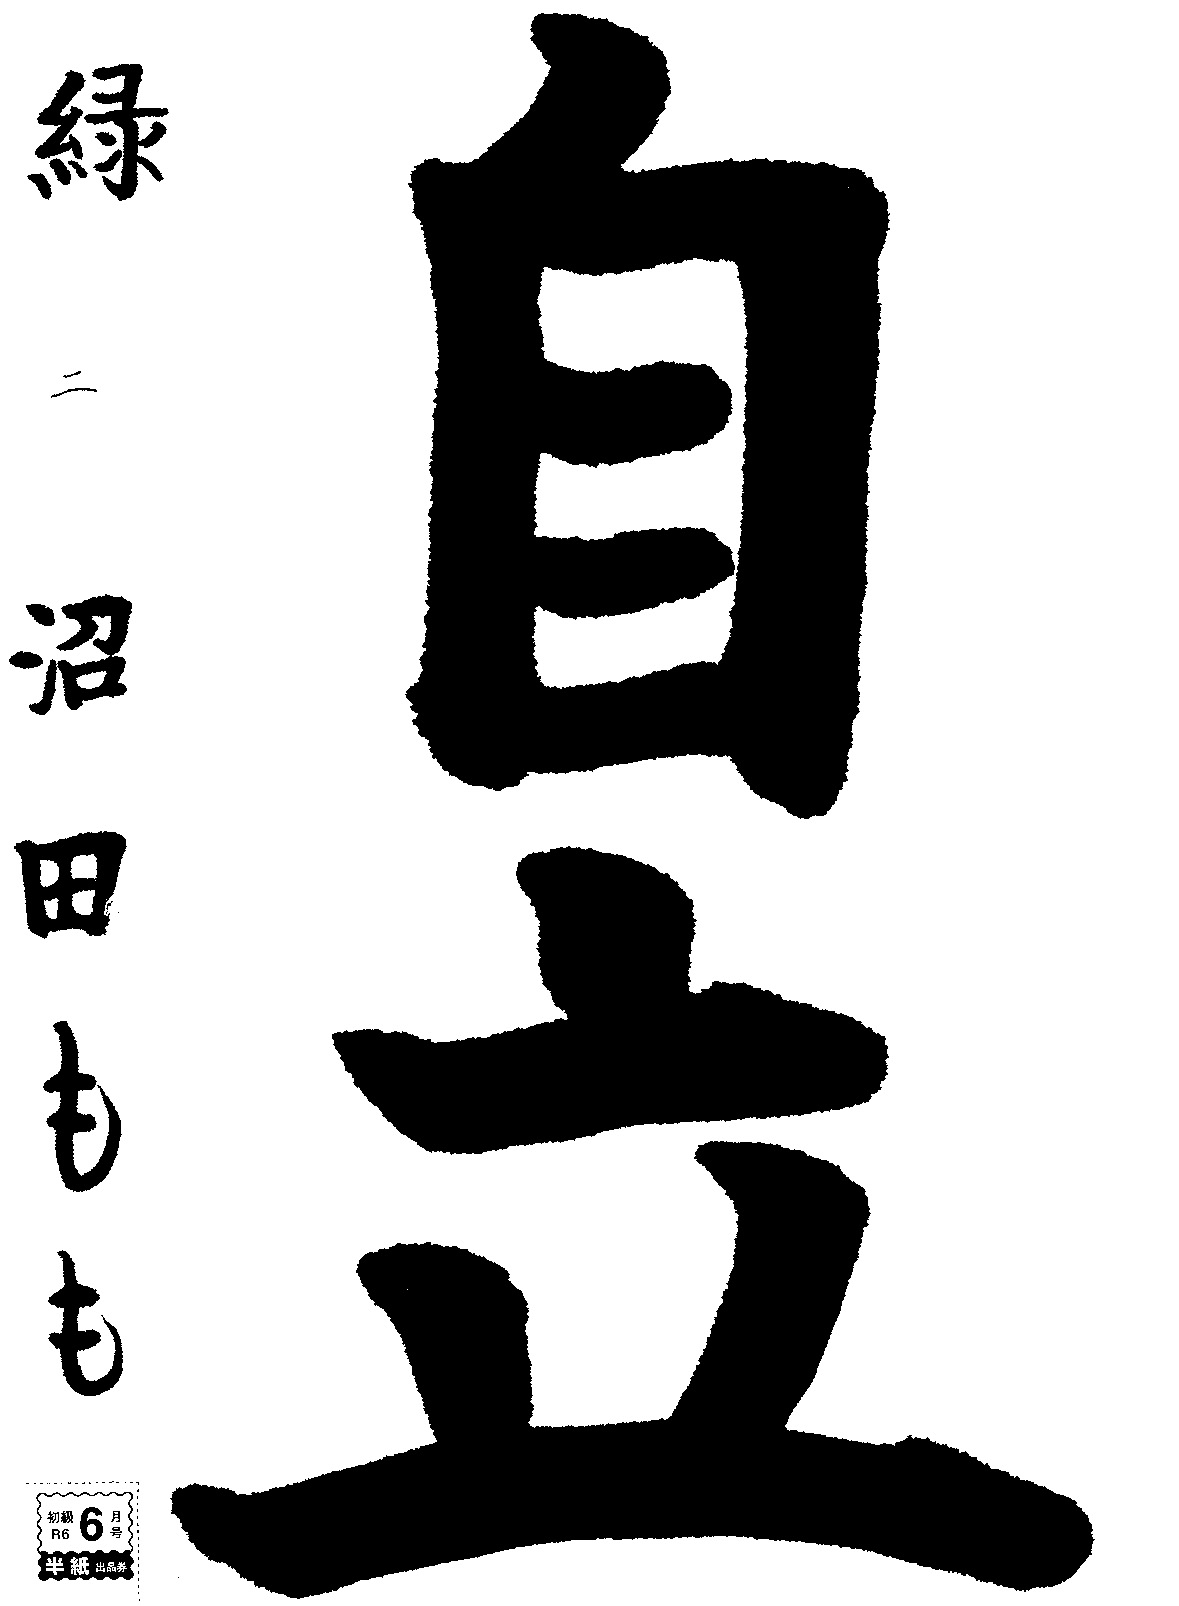 自立
緑 二 沼田もも
初級 R6 6月号
半紙 出品券